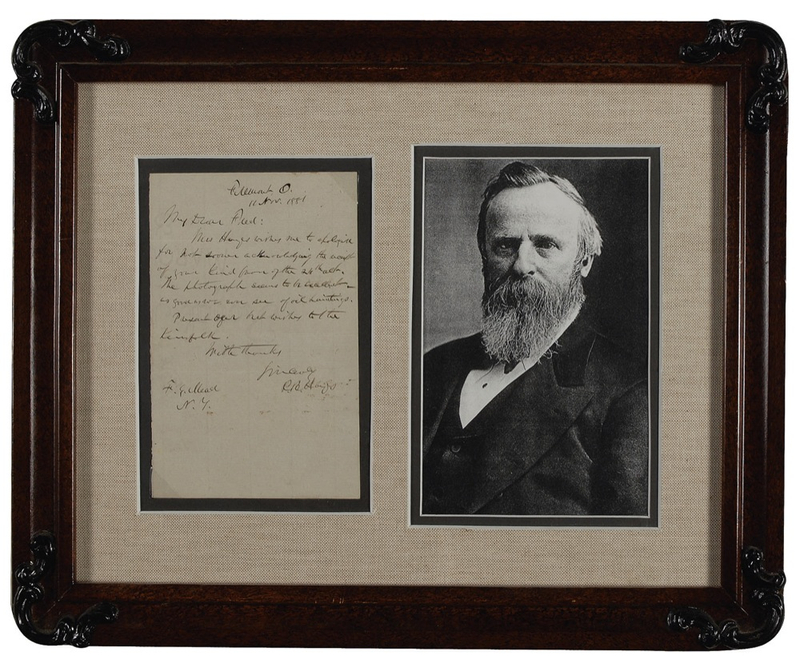 Fremont O.
11 Nov. 1881
My Dear Fred:
Mrs Hayes wishes me to apologise
for not sooner acknowledging the receipt
of your kind favor of the
The photograph seems to be excellent—
as good as we see of oil paintings.
Present our best wishes to the
kinfolk.
With thanks
Sincerely
F. G. Mead
R B Hayes
N. Y.